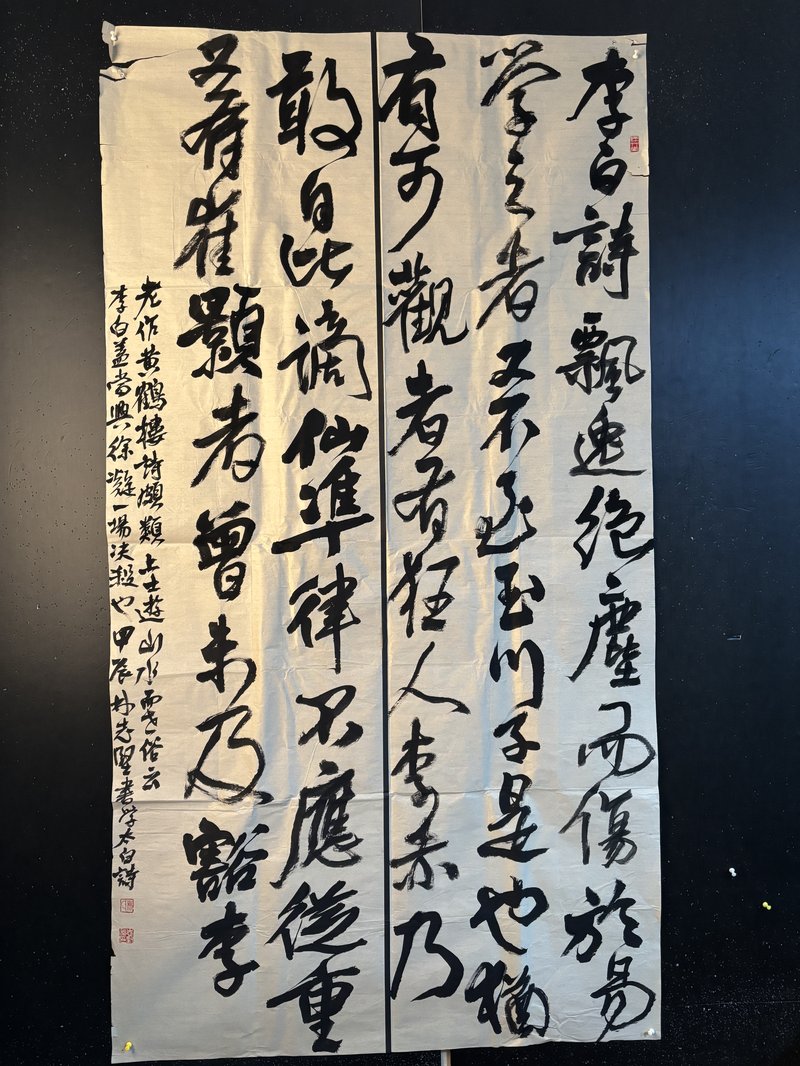 李白詩飄逸絕塵而傷於易
学之者又不至玉川子是也猶
有可觀者有狂人李赤乃
敢自比謫仙準律不應從重
又有崔顥者曾未及豁李
老作黄鶴樓詩頗類上士遊山水而世俗云
李白蓋當與徐凝一場决殺也甲辰林志書学太白詩